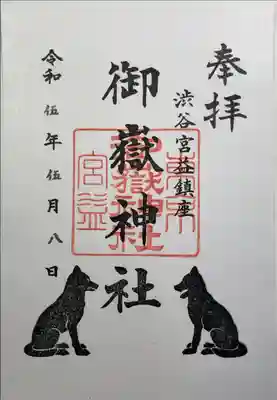 奉拝
渋谷宮益鎮座
御嶽神社
令和伍年伍月八日
東京
御嶽神社
宮益